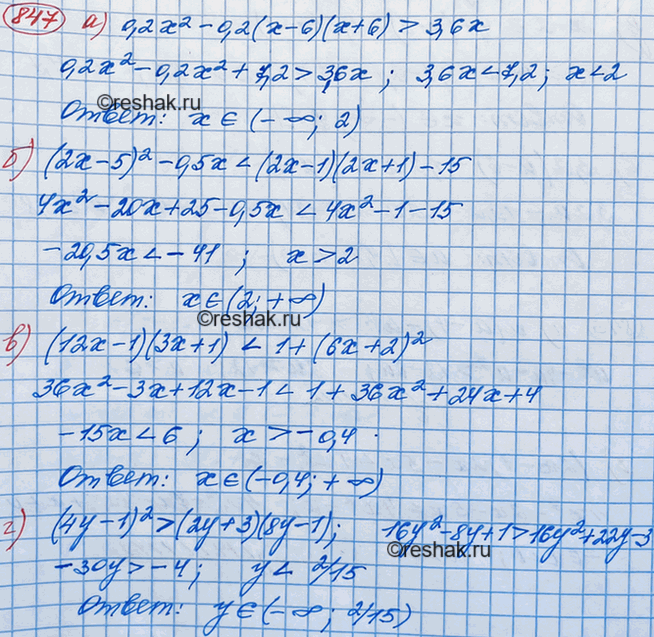 847 а) 0,2x² - 0,2(x-6)(x+6) > 3,6x
0,2x² - 0,2x² + 7,2 > 3,6x ; 3,6x < 7,2; x < 2
©reshak.ru
Ответ: x ∈ (-∞; 2)
б) (2x-5)² - 0,5x < (2x-1)(2x+1) - 15
4x² - 20x + 25 - 0,5x < 4x² - 1 - 15
-20,5x < -41 ; x > 2
Ответ: x ∈ (2; +∞)
©reshak.ru
в) (12x-1)(3x+1) < 1 + (6x+2)²
36x² - 3x + 12x - 1 < 1 + 36x² + 24x + 4
-15x < 6 ; x > -0,4
Ответ: x ∈ (-0,4; +∞)
г) (4y-1)² > (2y+3)(8y-1); 16y² - 8y + 1 > 16y² + 22y - 3
©reshak.ru
-30y > -4 ; y < 2/15
Ответ: y ∈ (-∞; 2/15)